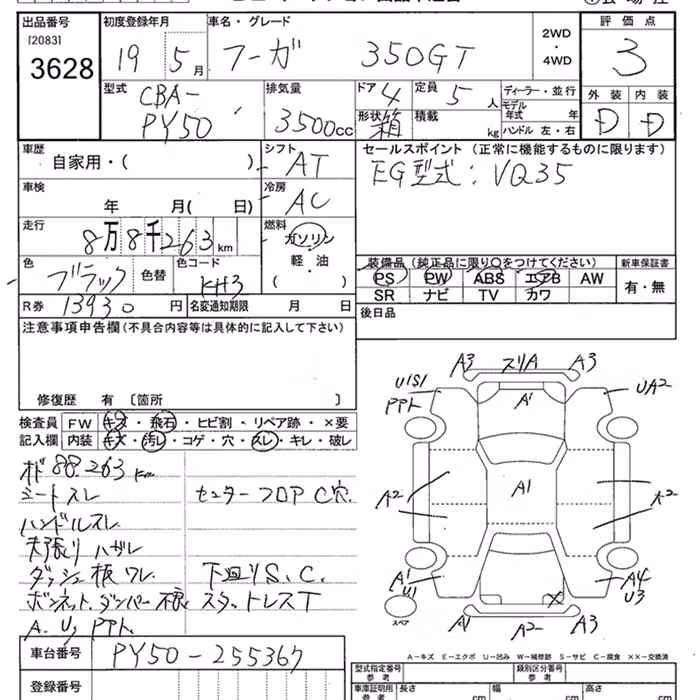 出品番号 初度登録年月 車名・グレード 評価点
[2083] 3628
19 5月 フーガ 350GT 2WD・4WD 3
型式 CBA-PY50 排気量 3500cc
ドア 4 定員 5人 ディーラー・並行 外装 内装
形状 箱 積載 kg モデル年式 年 D D
ハンドル 左・右
車歴 自家用・( )
シフト AT
セールスポイント (正常に機能するものに限ります)
EG型式:VQ35
車検 年 月( 日)
冷房 AC
走行 8万8千263km
燃料 ガソリン・軽油 ( )
色 ブラック 色替 色コード KH3
装備品 (純正品に限り○をつけてください) 新車保証書
PS PW ABS エアB AW 有・無
SR ナビ TV カワ
R券 13930円 名変通知期限 月 日
後日品
注意事項申告欄(不具合内容等は具体的に記入して下さい)
修復歴 有 〔箇所 〕
検査員 FW キズ・飛石・ヒビ割・リペア跡・×要
記入欄 内装 キズ・汚レ・コゲ・穴・スレ・キレ・破レ
88.263km
シートスレ センターフロアC穴
ハンドルスレ
ハガレ
ダッシュ板ワレ 下廻りS.C.
ボンネットダンパー不良 スタットレスT
A.U,PPト
A3 スリA A3
U1S1 PPト A1 UA2
A2 A1 A2
A1 U1 × A4 U3
スペア A1 A2 A3
A-キズ E-エクボ U-凹み W-補修跡 S-サビ C-腐食 XX-交換済
車台番号 PY50-255367
登録番号
型式指定番号 参考 類別区分番号 参考
車庫証明用 参考 長さ cm 幅 cm 高さ cm